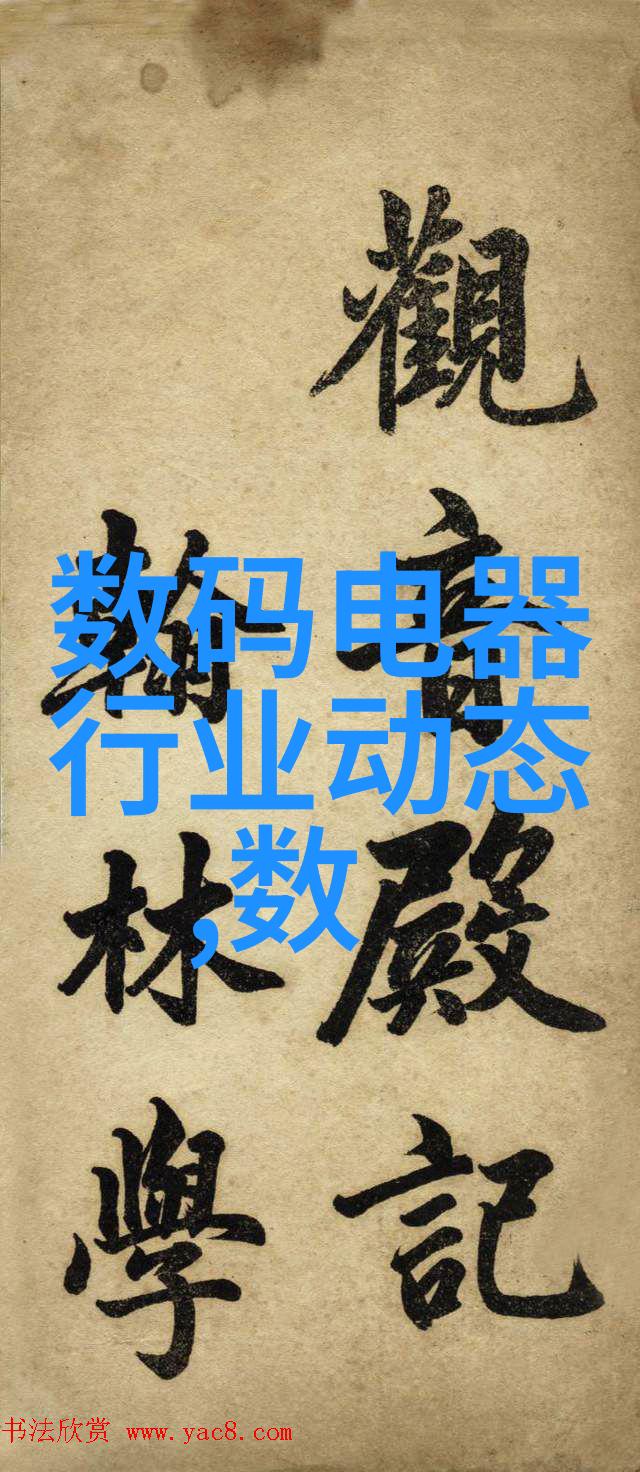 觀音殿記
翰林學
数码电器
行业动态
,数
书法欣赏 www.yac8.com